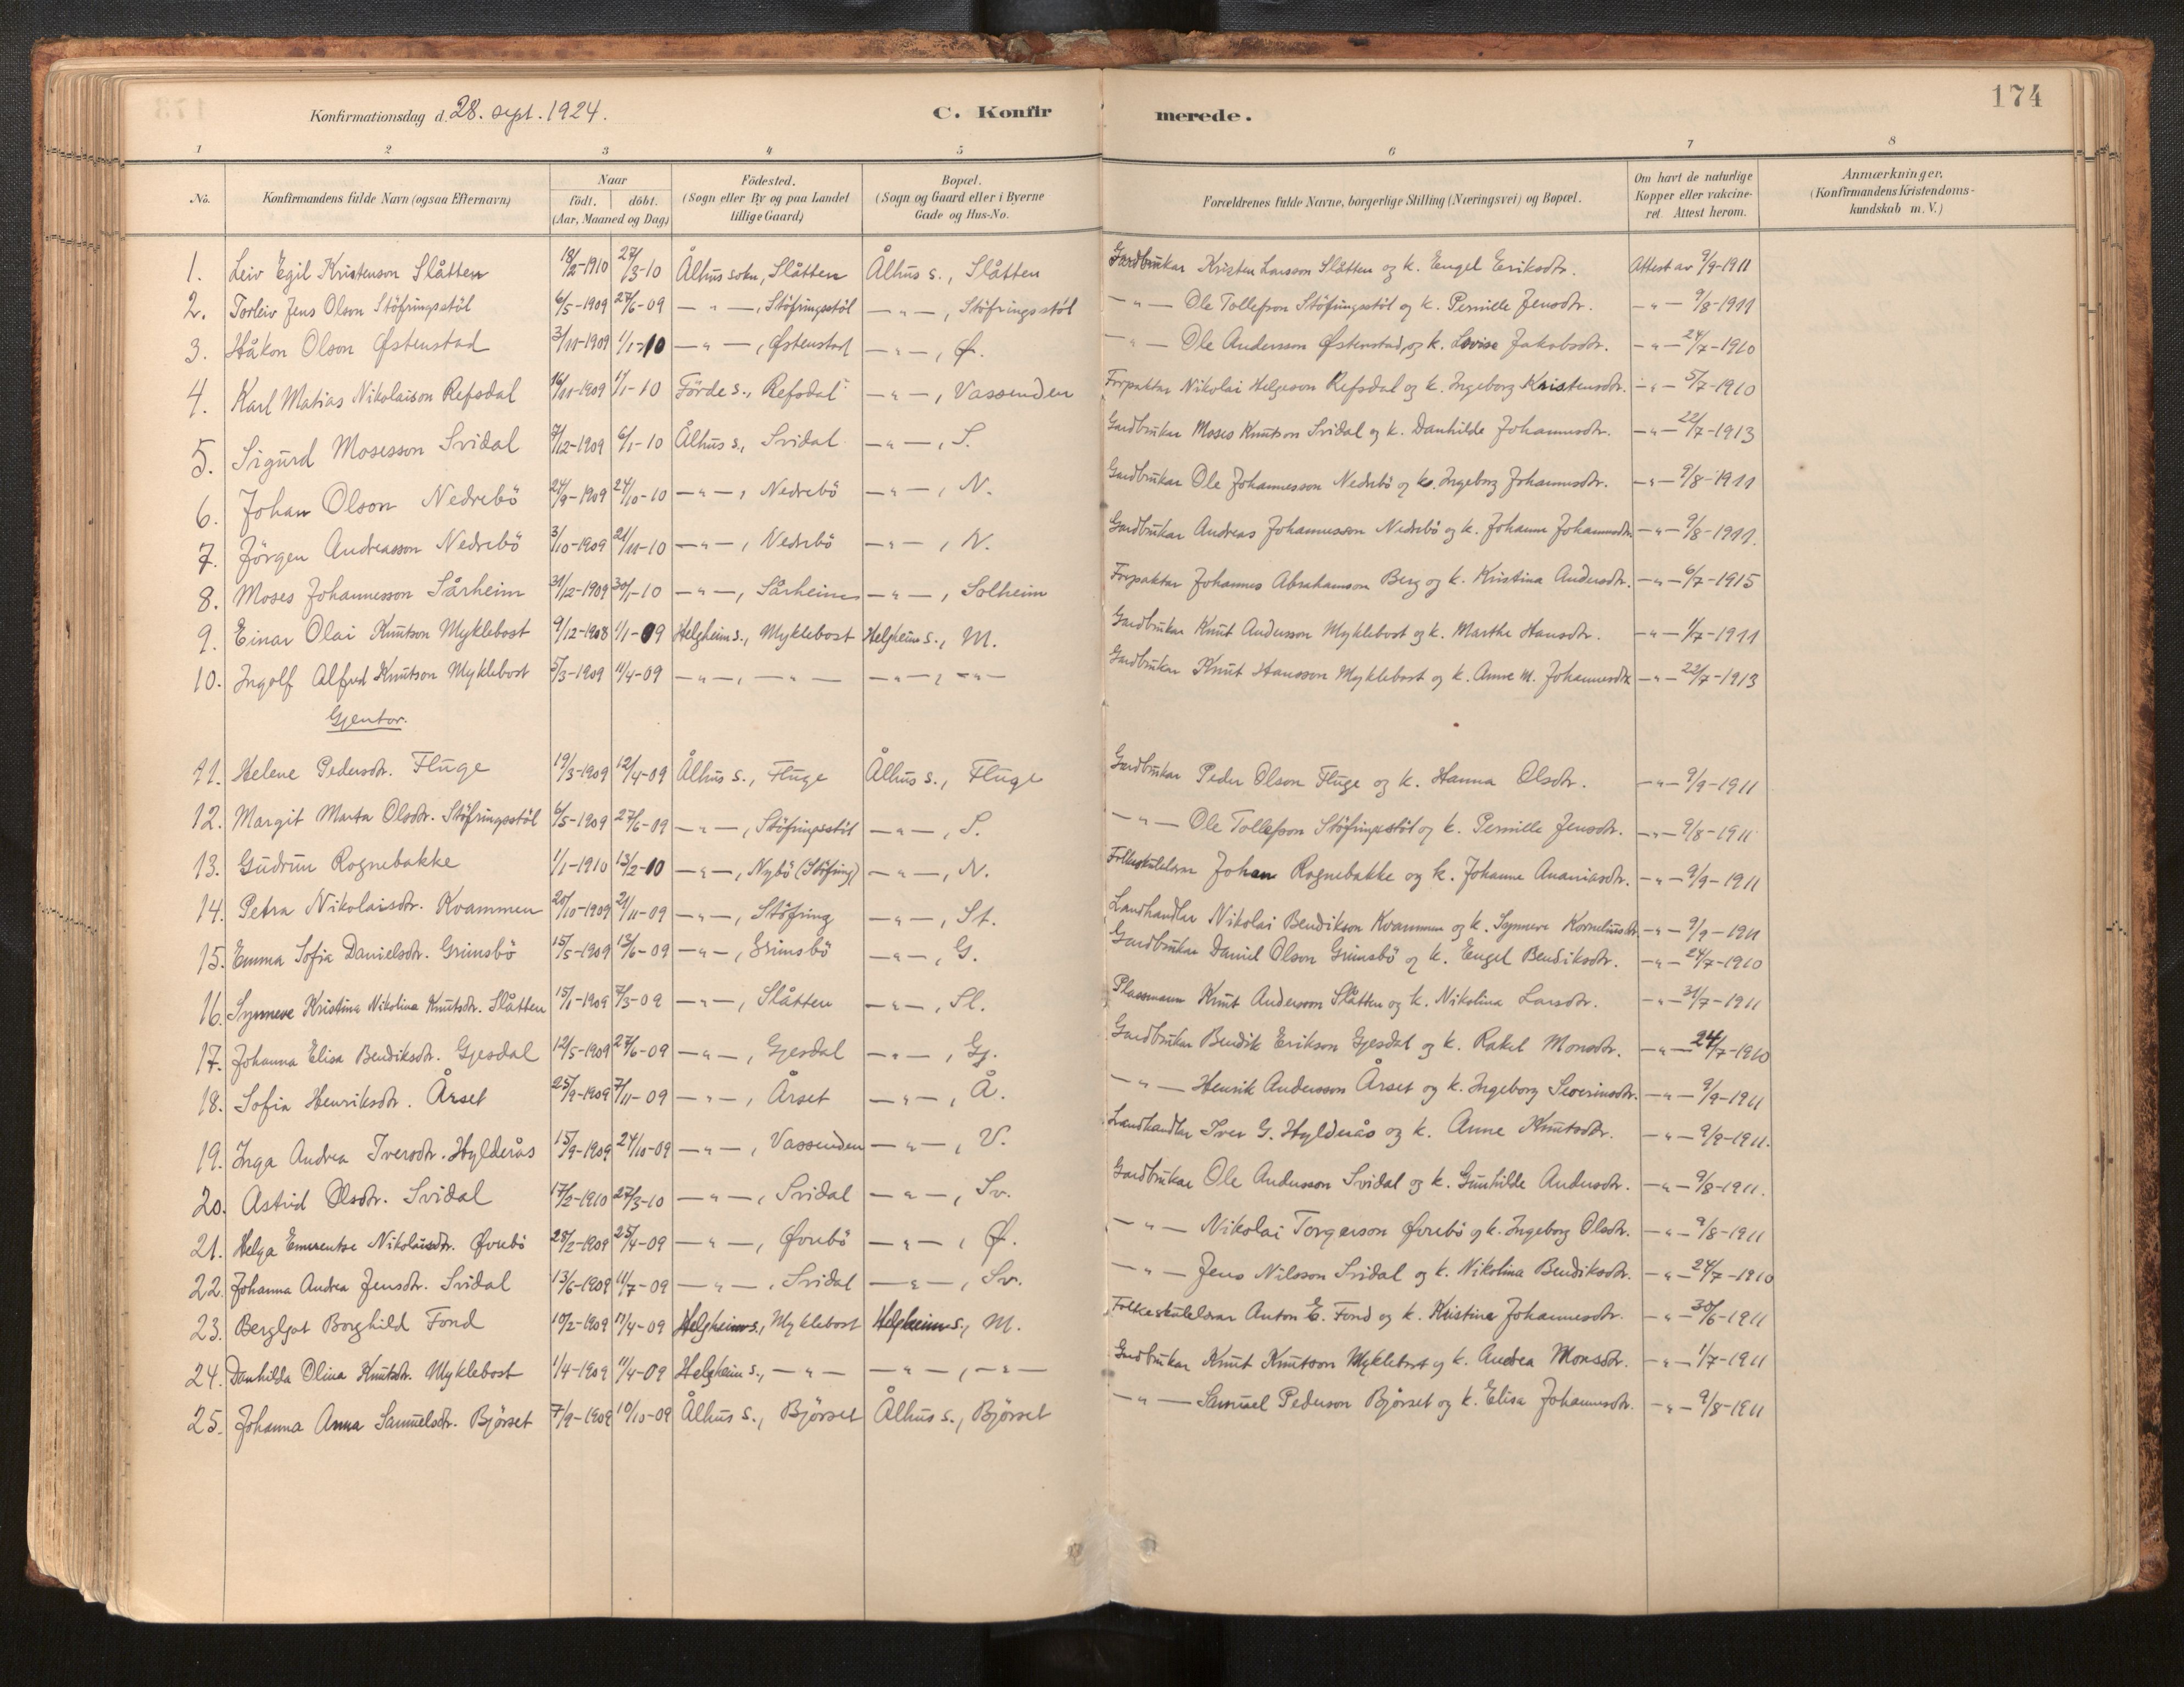 174
Konfirmationsdag d. 28. sept. 1924. C. Konfirmerede.
1 2 3 4 5 6 7 8
No. Konfirmandens fulde Navn (ogsaa Efternavn) Naar født. døbt. (Aar, Maaned og Dag) Födested. (Sogn eller By og paa Landet tillige Gaard) Bopæl. (Sogn og Gaard eller i Byerne Gade og Hus-No. Forældrenes fulde Navne, borgerlige Stilling (Næringsvei) og Bopæl. Om havt de naturlige Kopper eller vakcineret. Attest herom. Anmærkninger. (Konfirmandens Kristendomskundskab m. V.)
1. Leiv Egil Kristenson Slåtten 18/2-1910 27/3-10 Ålhus sokn, Slåtten Ålhus s., Slåtten Gardbrukar Kristen Larsson Slåtten og k. Engel Eriksdtr. Attest av 9/9-1911
2. Torleiv Jens Olson Stöfringsstöl 6/5-1909 27/6-09 — " —, Stöfringsstöl — " —, Stöfringsstöl — " — Ole Tollefson Stöfringsstöl og k. Pernille Jensdtr. — " — 9/8-1911
3. Håkon Olson Østenstad 3/11-1909 1/1-10 — " —, Østenstad — " —, Ø. — " — Ole Andersson Østenstad, og k. Lovise Jakobsdtr. — " — 24/7-1910
4. Karl Matias Nikolaison Refsdal 16/11-1909 1/1-10 Förde s., Refsdal — " —, Vassenden Forpaktar Nikolai Helgeson Refsdal og k. Ingeborg Kristensdtr. — " — 5/7-1910
5. Sigurd Mosesson Svidal 7/12-1909 6/1-10 Ålhus s., Svidal — " —, S. Gardbrukar Moses Knutson Svidal og k. Danhilde Johannesdtr. — " — 22/7-1913
6. Johan Olson Nedrebö 24/9-1909 24/10-10 — " —, Nedrebö — " —, N. Gardbrukar Ole Johannesson Nedrebö og k. Ingeborg Johannesdtr. — " — 9/8-1911
7. Jörgen Andreasson Nedrebö 3/10-1909 21/11-10 — " —, Nedrebö — " —, N. Gardbrukar Andreas Johannesson Nedrebö og k. Johanne Johannesdtr. — " — 9/8-1911.
8. Moses Johannesson Sårheim 31/12-1909 30/1-10 — " —, Sårheim — " —, Solheim Forpaktar Johannes Abrahamson Berg og k. Kristina Andersdtr. — " — 6/7-1915
9. Einar Olai Knutson Myklebost 9/12-1908 1/1-09 Helgheim s., Myklebost Helgheim s., M. Gardbrukar Knut Andersson Myklebost og k. Marthe Hansdtr. — " — 1/7-1911
10. Ingolf Alfred Knutson Myklebost 5/3-1909 11/4-09 — " —, — " — — " —, — " — Gardbrukar Knut Hansson Myklebost og k. Anne M. Johannesdtr. — " — 22/7-1913
Gjentor.
11. Helene Pedersdtr. Fluge 19/3-1909 12/4-09 Ålhus s., Fluge Ålhus s., Fluge Gardbrukar Peder Olson Fluge og k. Hanna Olsdtr. — " — 9/9-1911
12. Margit Marta Olsdtr. Stöfringsstöl 6/5-1909 27/6-09 — " —, Stöfringsstöl — " —, S. — " — Ole Tollefson Stöfringsstöl og k. Pernille Jensdtr. — " — 9/8-1911
13. Gudrun Rognebakke 1/1-1910 13/2-10 — " —, Nybö (Stöfring) — " —, N. Folkeskulelærar Johan Rognebakke og k. Johanne Ananiasdtr. — " — 9/9-1911
14. Petra Nikolaisdtr. Kvammen 20/10-1909 21/11-09 — " —, Stöfring — " —, St. Landhandlar Nikolai Bendikson Kvammen og k. Synneve Korneliusdtr. — " — 9/9-1911
15. Emma Sofia Danielsdtr. Grimsbö 15/5-1909 13/6-09 — " —, Grimsbö — " —, G. Gardbrukar Daniel Olson Grimsbö og k. Engel Bendiksdtr. — " — 24/7-1910
16. Synneve Kristina Nikolina Knutsdtr. Slåtten 15/1-1909 7/3-09 — " —, Slåtten — " —, Sl. Plassmann Knut Andersson Slåtten og k. Nikolina Larsdtr. — " — 31/7-1911
17. Johanna Elisa Bendiksdtr. Gjesdal 12/5-1909 27/6-09 — " —, Gjesdal — " —, Gj. Gardbrukar Bendik Erikson Gjesdal og k. Rakel Monsdtr. — " — 24/7-1910
18. Sofia Henriksdtr. Årset 25/9-1909 7/11-09 — " —, Årset — " —, Å. — " — Henrik Andersson Årset og k. Ingeborg Severinsdtr. — " — 9/9-1911
19. Inga Andrea Iversdtr. Hylderås 15/9-1909 24/10-09 — " —, Vassenden — " —, V. Landhandlar Iver G. Hylderås og k. Anne Knutsdtr. — " — 9/9-1911.
20. Astrid Olsdtr. Svidal 17/2-1910 27/3-10 — " —, Svidal — " —, Sv. Gardbrukar Ole Andersson Svidal og k. Gunhilde Andersdtr. — " — 9/8-1911.
21. Helga Emerentse Nikolaisdtr. Øvrebö 28/2-1909 25/4-09 — " —, Øvrebö — " —, Ø. — " — Nikolai Torgerson Øvrebö og k. Ingeborg Olsdtr. — " — 9/8-1911
22. Johanna Andrea Jensdtr. Svidal 13/6-1909 11/7-09 — " —, Svidal — " —, Sv. — " — Jens Nilsson Svidal og k. Nikolina Bendiksdtr. — " — 24/7-1910
23. Bergljot Borghild Fond 10/2-1909 11/4-09 Helgheim s., Myklebost Helgheim s., M. Folkeskulelærar Anton E. Fond og k. Kristine Johannesdtr. — " — 30/6-1911
24. Danhilda Olina Knutsdtr. Myklebost 1/4-1909 11/4-09 Helgheim s., — " — — " —, — " — Gardbrukar Knut Knutson Myklebost og k. Andrea Monsdtr. — " — 1/7-1911
25. Johanna Anna Samuelsdtr. Bjørset 7/9-1909 10/10-09 Ålhus s., Bjørset Ålhus s., Bjørset — " — Samuel Pederson Bjørset og k. Elisa Johannesdtr. — " — 9/8-1911